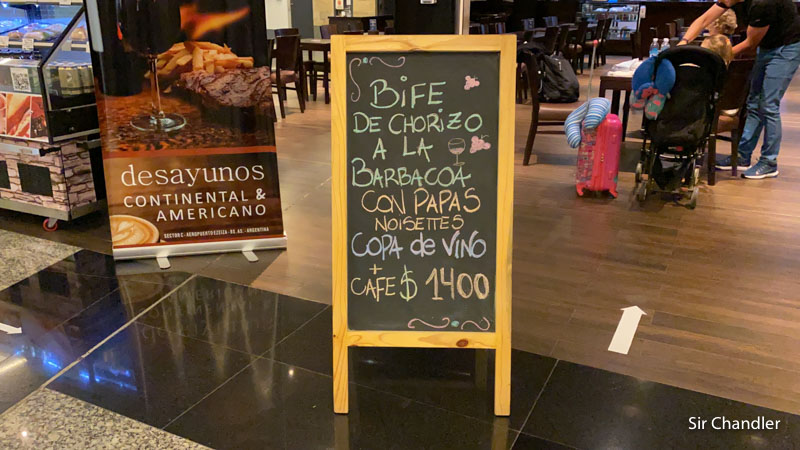 desayunos
CONTINENTAL &
AMERICANO
SECTOR C - AEROPUERTO EZEIZA - BS. AS. - ARGENTINA
BIFE
DE CHORIZO
A LA
BARBACOA
CON PAPAS
NOISETTES
COPA de VINO
+
CAFE $ 1400
Sir Chandler